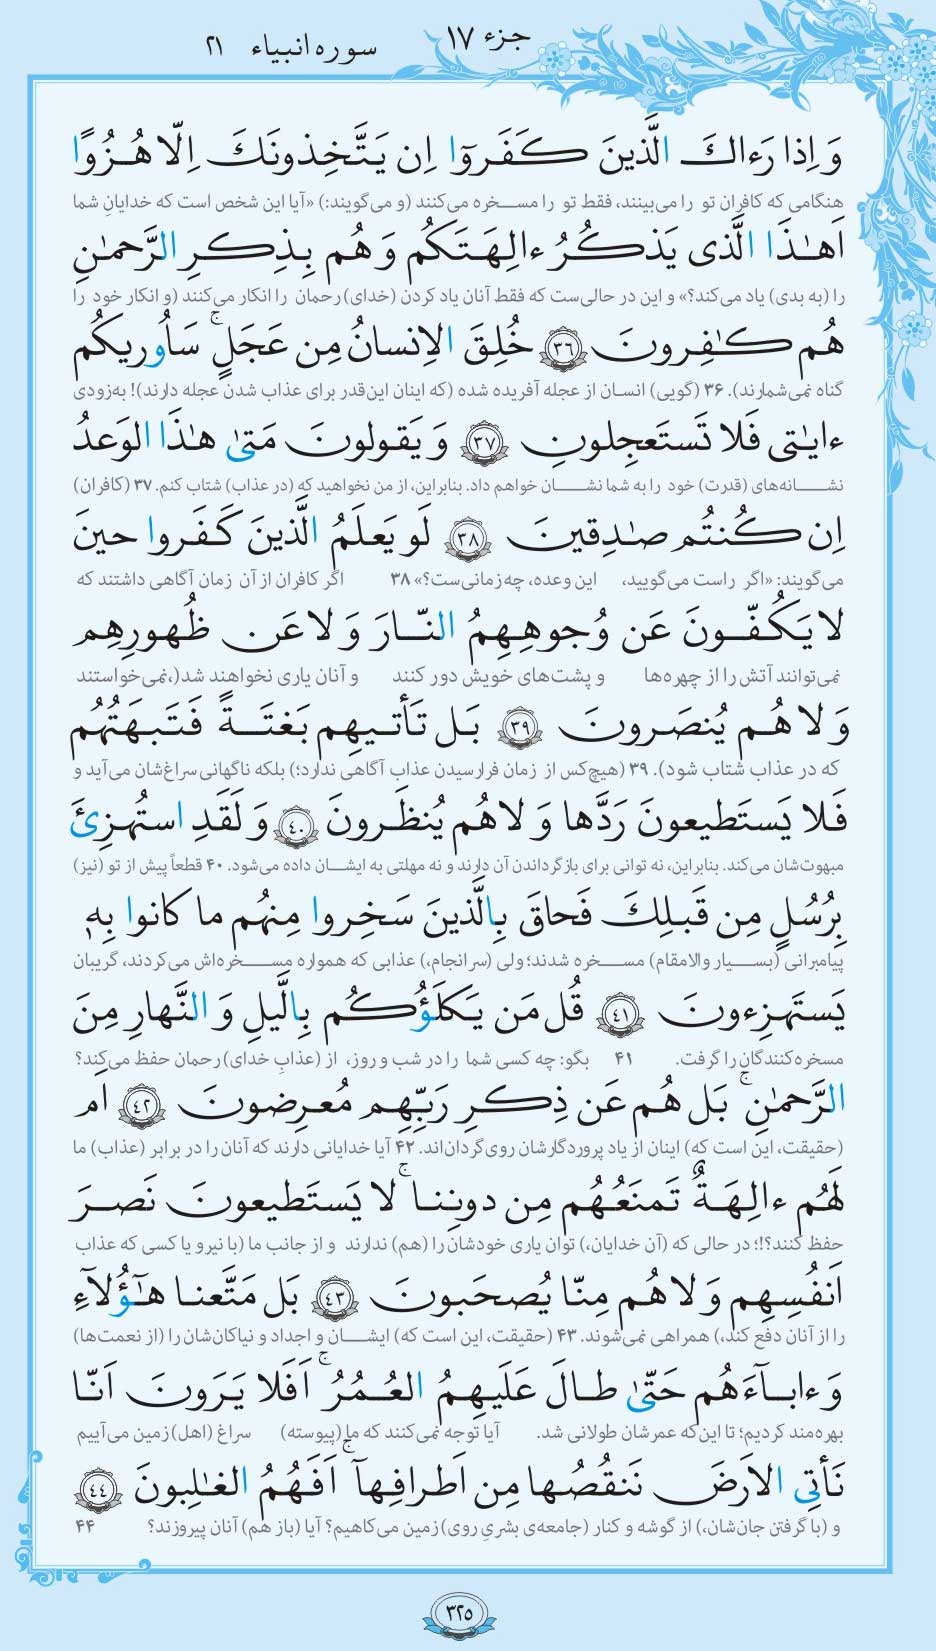 جزء ۱۷
سوره انبیاء ۲۱
وَ اِذا رَءاكَ الَّذينَ كَفَروٓا اِن يَتَّخِذونَكَ اِلّا هُزُوًا
هنگامی که کافران تو را می‌بینند، فقط تو را مسخره می‌کنند (و می‌گویند:) «آیا این شخص است که خدایانِ شما
اَهـٰذَا الَّذى يَذكُرُ ءالِهَتَكُم وَ هُم بِذِكرِ الرَّحمـٰنِ
را (به بدی) یاد می‌کند؟» و این در حالی‌ست که فقط آنان یاد کردن (خدای) رحمان را انکار می‌کنند (و انکار خود را
هُم كـٰفِرونَ ﴿۳۶﴾ خُلِقَ الاِنسانُ مِن عَجَلٍ ۚ سَاُوريكُم
گناه نمی‌شمارند). ۳۶ (گویی) انسان از عجله آفریده شده (که اینان این‌قدر برای عذاب شدن عجله دارند)! به‌زودی
ءايٰتى فَلا تَستَعجِلونِ ﴿۳۷﴾ وَ يَقولونَ مَتىٰ هـٰذَا الوَعدُ
نشانه‌های (قدرت) خود را به شما نشان خواهم داد. بنابراین، از من نخواهید که (در عذاب) شتاب کنم. ۳۷ (کافران)
اِن كُنتُم صـٰدِقينَ ﴿۳۸﴾ لَو يَعلَمُ الَّذينَ كَفَروا حينَ
می‌گویند: «اگر راست می‌گویید، این وعده، چه زمانی‌ست؟» ۳۸ اگر کافران از آن زمان آگاهی داشتند که
لا يَكُفّونَ عَن وُجوهِهِمُ النّارَ وَ لا عَن ظُهورِهِم
نمی‌توانند آتش را از چهره‌ها و پشت‌های خویش دور کنند و آنان یاری نخواهند شد(، نمی‌خواستند
وَ لا هُم يُنصَرونَ ﴿۳۹﴾ بَل تَأتيهِم بَغتَةً فَتَبهَتُهُم
که در عذاب شتاب شود). ۳۹ (هیچ‌کس از زمان فرارسیدن عذاب آگاهی ندارد؛) بلکه ناگهانی سراغ‌شان می‌آید و
فَلا يَستَطيعونَ رَدَّها وَ لا هُم يُنظَرونَ ﴿۴۰﴾ وَ لَقَدِ استُهزِئَ
مبهوت‌شان می‌کند. بنابراین، نه توانی برای بازگرداندن آن دارند و نه مهلتی به ایشان داده می‌شود. ۴۰ قطعاً پیش از تو (نیز)
بِرُسُلٍ مِن قَبلِكَ فَحاقَ بِالَّذينَ سَخِروا مِنهُم ما كانوا بِهٖ
پیامبرانی (بسیار والامقام) مسخره شدند؛ ولی (سرانجام،) عذابی که همواره مسخره‌اش می‌کردند، گریبان
يَستَهزِءونَ ﴿۴۱﴾ قُل مَن يَكلَؤُكُم بِالَّيلِ وَ النَّهارِ مِنَ
مسخره‌کنندگان را گرفت. ۴۱ بگو: چه کسی شما را در شب و روز، از (عذابِ خدای) رحمان حفظ می‌کند؟
الرَّحمـٰنِ ۚ بَل هُم عَن ذِكرِ رَبِّهِم مُعرِضونَ ﴿۴۲﴾ اَم
(حقیقت، این است که) اینان از یاد پروردگارشان روی‌گردان‌اند. ۴۲ آیا خدایانی دارند که آنان را در برابر (عذاب) ما
لَهُم ءالِهَةٌ تَمنَعُهُم مِن دونِنا ۚ لا يَستَطيعونَ نَصرَ
حفظ کنند؟!؛ در حالی که (آن خدایان،) توان یاری خودشان را (هم) ندارند و از جانب ما (با نیرو یا کسی که عذاب
اَنفُسِهِم وَ لا هُم مِنّا يُصحَبونَ ﴿۴۳﴾ بَل مَتَّعنا هـٰٓؤُلآءِ
را از آنان دفع کند،) همراهی نمی‌شوند. ۴۳ (حقیقت، این است که) ایشان و اجداد و نیاکان‌شان را (از نعمت‌ها)
وَ ءابآءَهُم حَتّىٰ طالَ عَلَيهِمُ العُمُرُ ۚ اَفَلا يَرَونَ اَنّا
بهره‌مند کردیم؛ تا این‌که عمرشان طولانی شد. آیا توجه نمی‌کنند که ما (پیوسته) سراغ (اهل) زمین می‌آییم
نَأتِى الاَرضَ نَنقُصُها مِن اَطرافِهآ ۚ اَفَهُمُ الغـٰلِبونَ ﴿۴۴﴾
و (با گرفتن جان‌شان،) از گوشه و کنار (جامعه‌ی بشریِ روی) زمین می‌کاهیم؟ آیا (باز هم) آنان پیروزند؟ ۴۴
۳۲۵